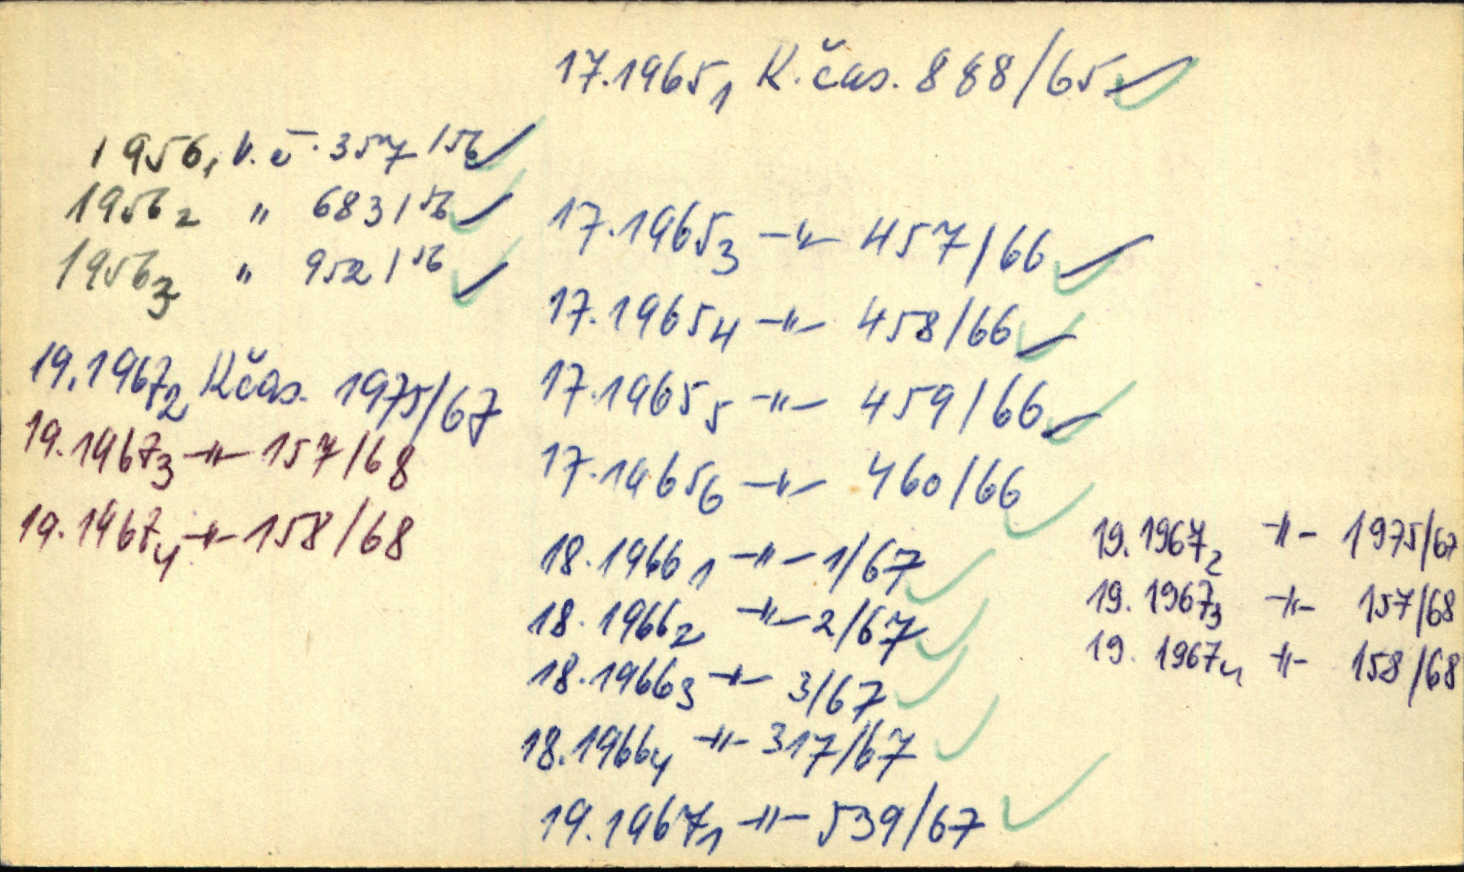 17.1965₁ K. čas. 888/65
1956₁ k. č. 357/56
1956₂ " 683/56
1956₃ " 952/56
19.1967₂ Kčas. 1975/67
19.1967₃ -"- 157/68
19.1967₄ -"- 158/68
17.1965₃ -"- 457/66
17.1965₄ -"- 458/66
17.1965₅ -"- 459/66
17.1965₆ -"- 460/66
18.1966₁ -"- 1/67
18.1966₂ -"- 2/67
18.1966₃ -"- 3/67
18.1966₄ -"- 317/67
19.1967₁ -"- 539/67
19.1967₂ -"- 1975/67
19.1967₃ -"- 157/68
19.1967₄ -"- 158/68